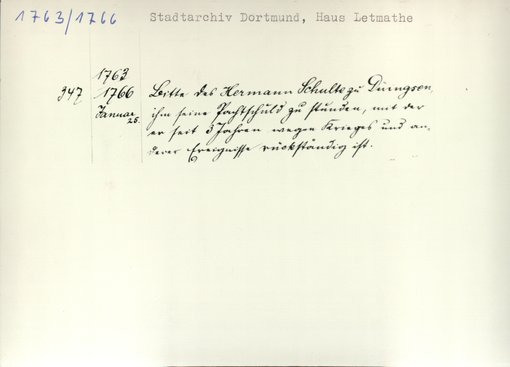 1763/1766 Stadtarchiv Dortmund, Haus Letmathe
1763
347 1766 Bitte des Hermann Schulte zu Düingsen,
Januar 25. ihm seine Pachtschuld zu stunden, mit der
er seit 3 Jahren wegen Krieges und an-
derer Ereignisse rückständig ist.